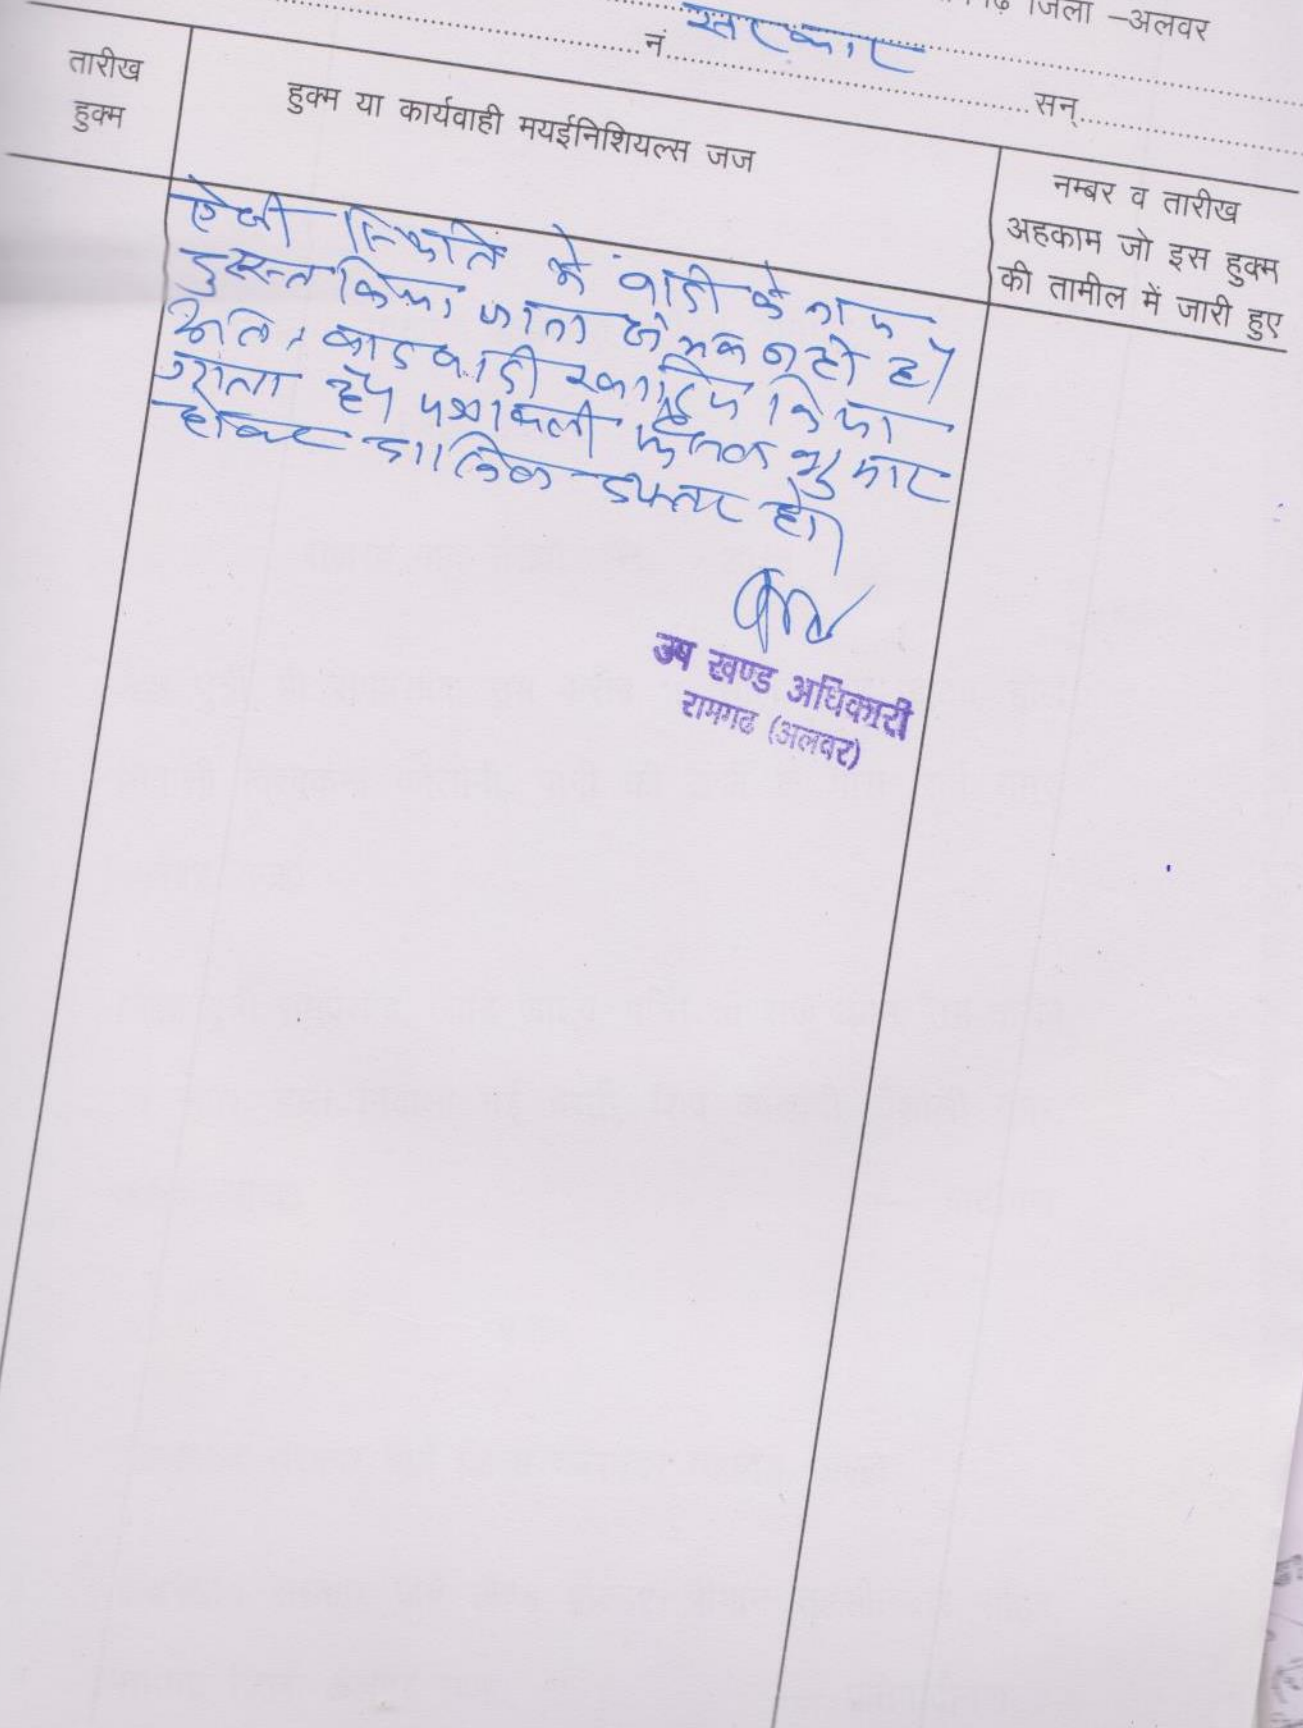 जिला –अलवर
सरकार
नं. सन्
तारीख
हुक्म
हुक्म या कार्यवाही मयईनिशियल्स जज
नम्बर व तारीख
अहकाम जो इस हुक्म
की तामील में जारी हुए
ऐसी स्थिति में वादी के नाम
दुरुस्त किया जाना संभव नही है।
अतः वाद वादी खारिज किया
जाता है। पत्रावली फैसल शुमार
होकर दाखिल दफ्तर हो।
उप खण्ड अधिकारी
रामगढ (अलवर)